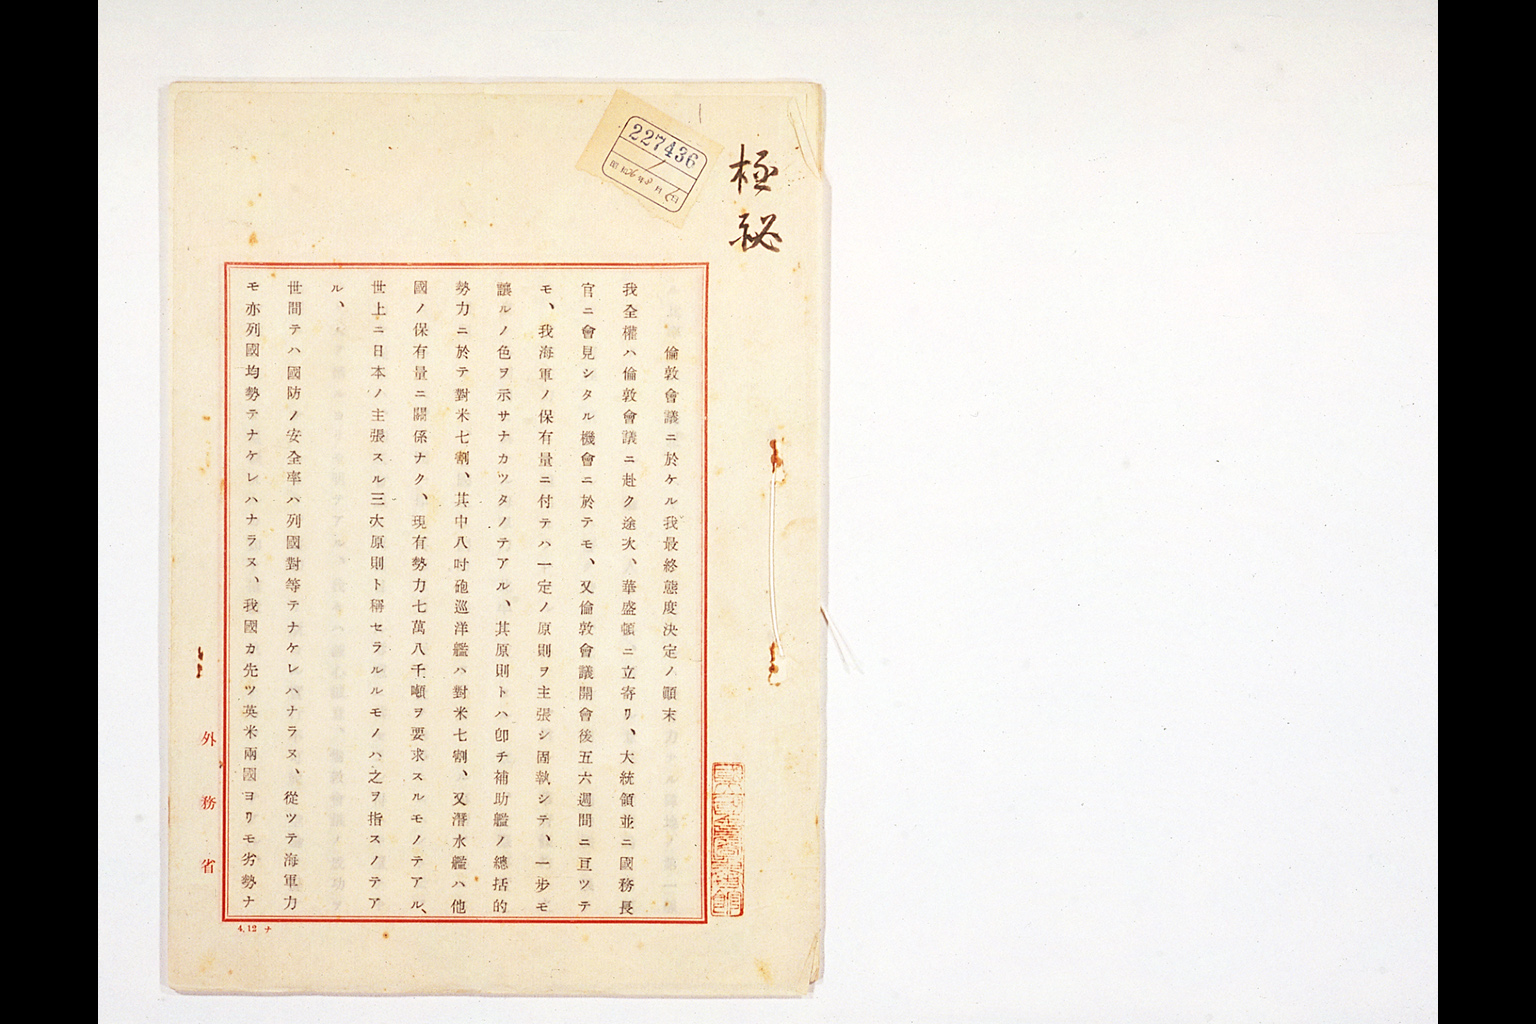 極秘
227436
倫敦會議ニ於ケル我最終態度決定ノ顚末
我全權ハ倫敦會議ニ赴ク途次、華盛頓ニ立寄リ、大統領並ニ國務長
官ニ會見シタル機會ニ於テモ、又倫敦會議開會後五六週間ニ亘ツテ
モ、我海軍ノ保有量ニ付テハ一定ノ原則ヲ主張シ固執シテ、一步モ
讓ルノ色ヲ示サナカツタノテアル、其原則トハ卽チ補助艦ノ總括的
勢力ニ於テ對米七割、其中八吋砲巡洋艦ハ對米七割、又潛水艦ハ他
國ノ保有量ニ關係ナク、現有勢力七萬八千噸ヲ要求スルモノテアル、
世上ニ日本ノ主張スル三大原則ト稱セラルルモノハ之ヲ指スノテア
ル、
世間テハ國防ノ安全率ハ列國對等テナケレハナラヌ、從ツテ海軍力
モ亦列國均勢テナケレハナラヌ、我國カ先ツ英米兩國ヨリモ劣勢ナ
外務省
4.12 ナ